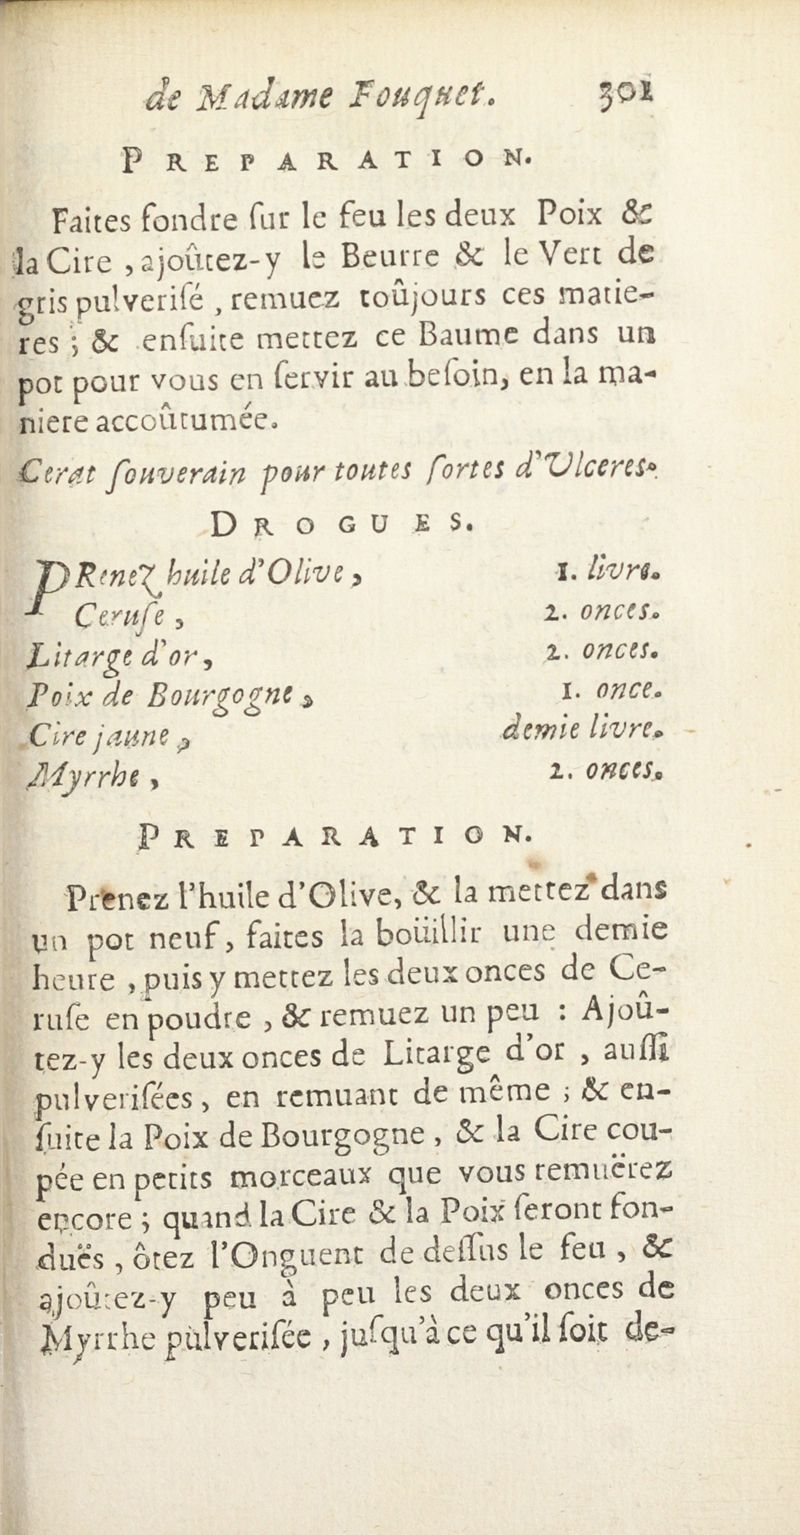 de Madame Fouquet. 301
PREPARATION.
Faites fondre ſur le feu les deux Poix &
la Cire , ajoûtez-y le Beurre & le Vert de
gris pulveriſé , remuez toûjours ces matie-
res ; & enſuite mettez ce Baume dans un
pot pour vous en ſervir au beſoin, en la ma-
niere accoûtumée.
Cerat ſouverain pour toutes ſortes d'Vlceres.
DROGUES.
PRenez huile d'Olive , 1. livre.
Ceruſe , 2. onces.
Litarge d'or , 2. onces.
Poix de Bourgogne , 1. once.
Cire jaune , demie livre.
Myrrhe , 2. onces.
PREPARATION.
Prenez l'huile d'Olive, & la mettez dans
un pot neuf , faites la boüillir une demie
heure , puis y mettez les deux onces de Ce-
ruſe en poudre , & remuez un peu : Ajoû-
tez-y les deux onces de Litarge d'or , auſſi
pulveriſées , en remuant de même ; & en-
ſuite la Poix de Bourgogne , & la Cire cou-
pée en petits morceaux que vous remuërez
encore ; quand la Cire & la Poix ſeront fon-
duës , ôtez l'Onguent de deſſus le feu , &
ajoûtez-y peu à peu les deux onces de
Myrrhe pulveriſée , juſqu'à ce qu'il ſoit de-